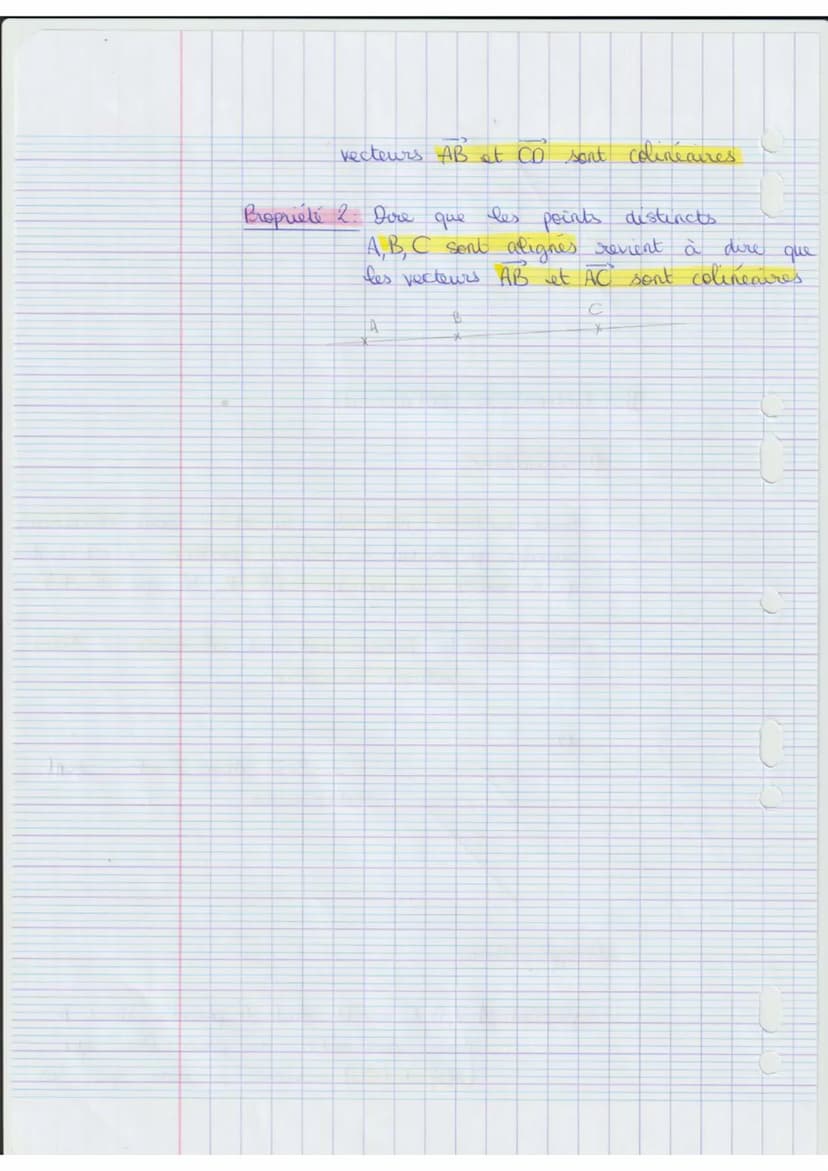 vecteurs AB et CD sont colinéaires
Propriété 2: Dire que les points distincts
A, B, C sont alignés revient à dire que
les vecteurs AB et AC sont colinéaires
A B C